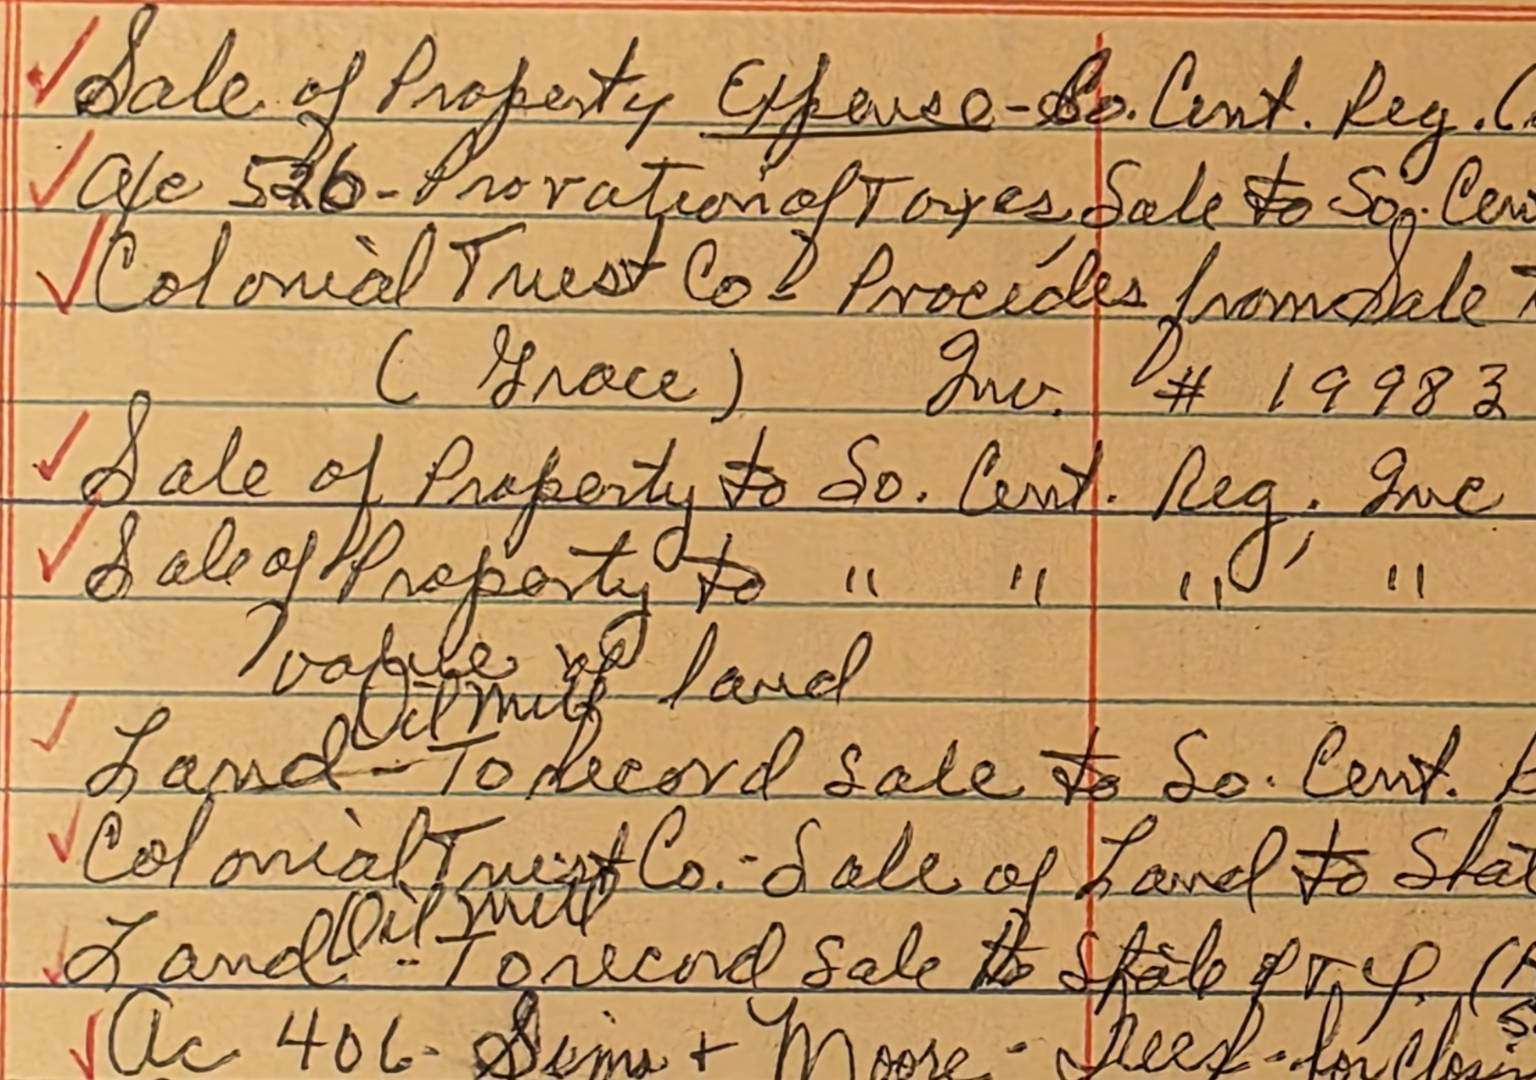 Sale of Property Expense - So. Cent. Reg. (
a/c 526 - Proration of Taxes, Sale to So. Cen
Colonial Trust Co - Procédes from Sale T
( Grace ) Inv. # 19983
Sale of Property to So. Cent. Reg., Inc
Sale of Property to " " " "
value of land
Oil Mill
Land - To record sale to So. Cent.
Colonial Trust Co. - Sale of Land to Stat
Oil Mill
Land - To record sale to State (
Ac 406 - Sims + Moore - Fees - for Closin